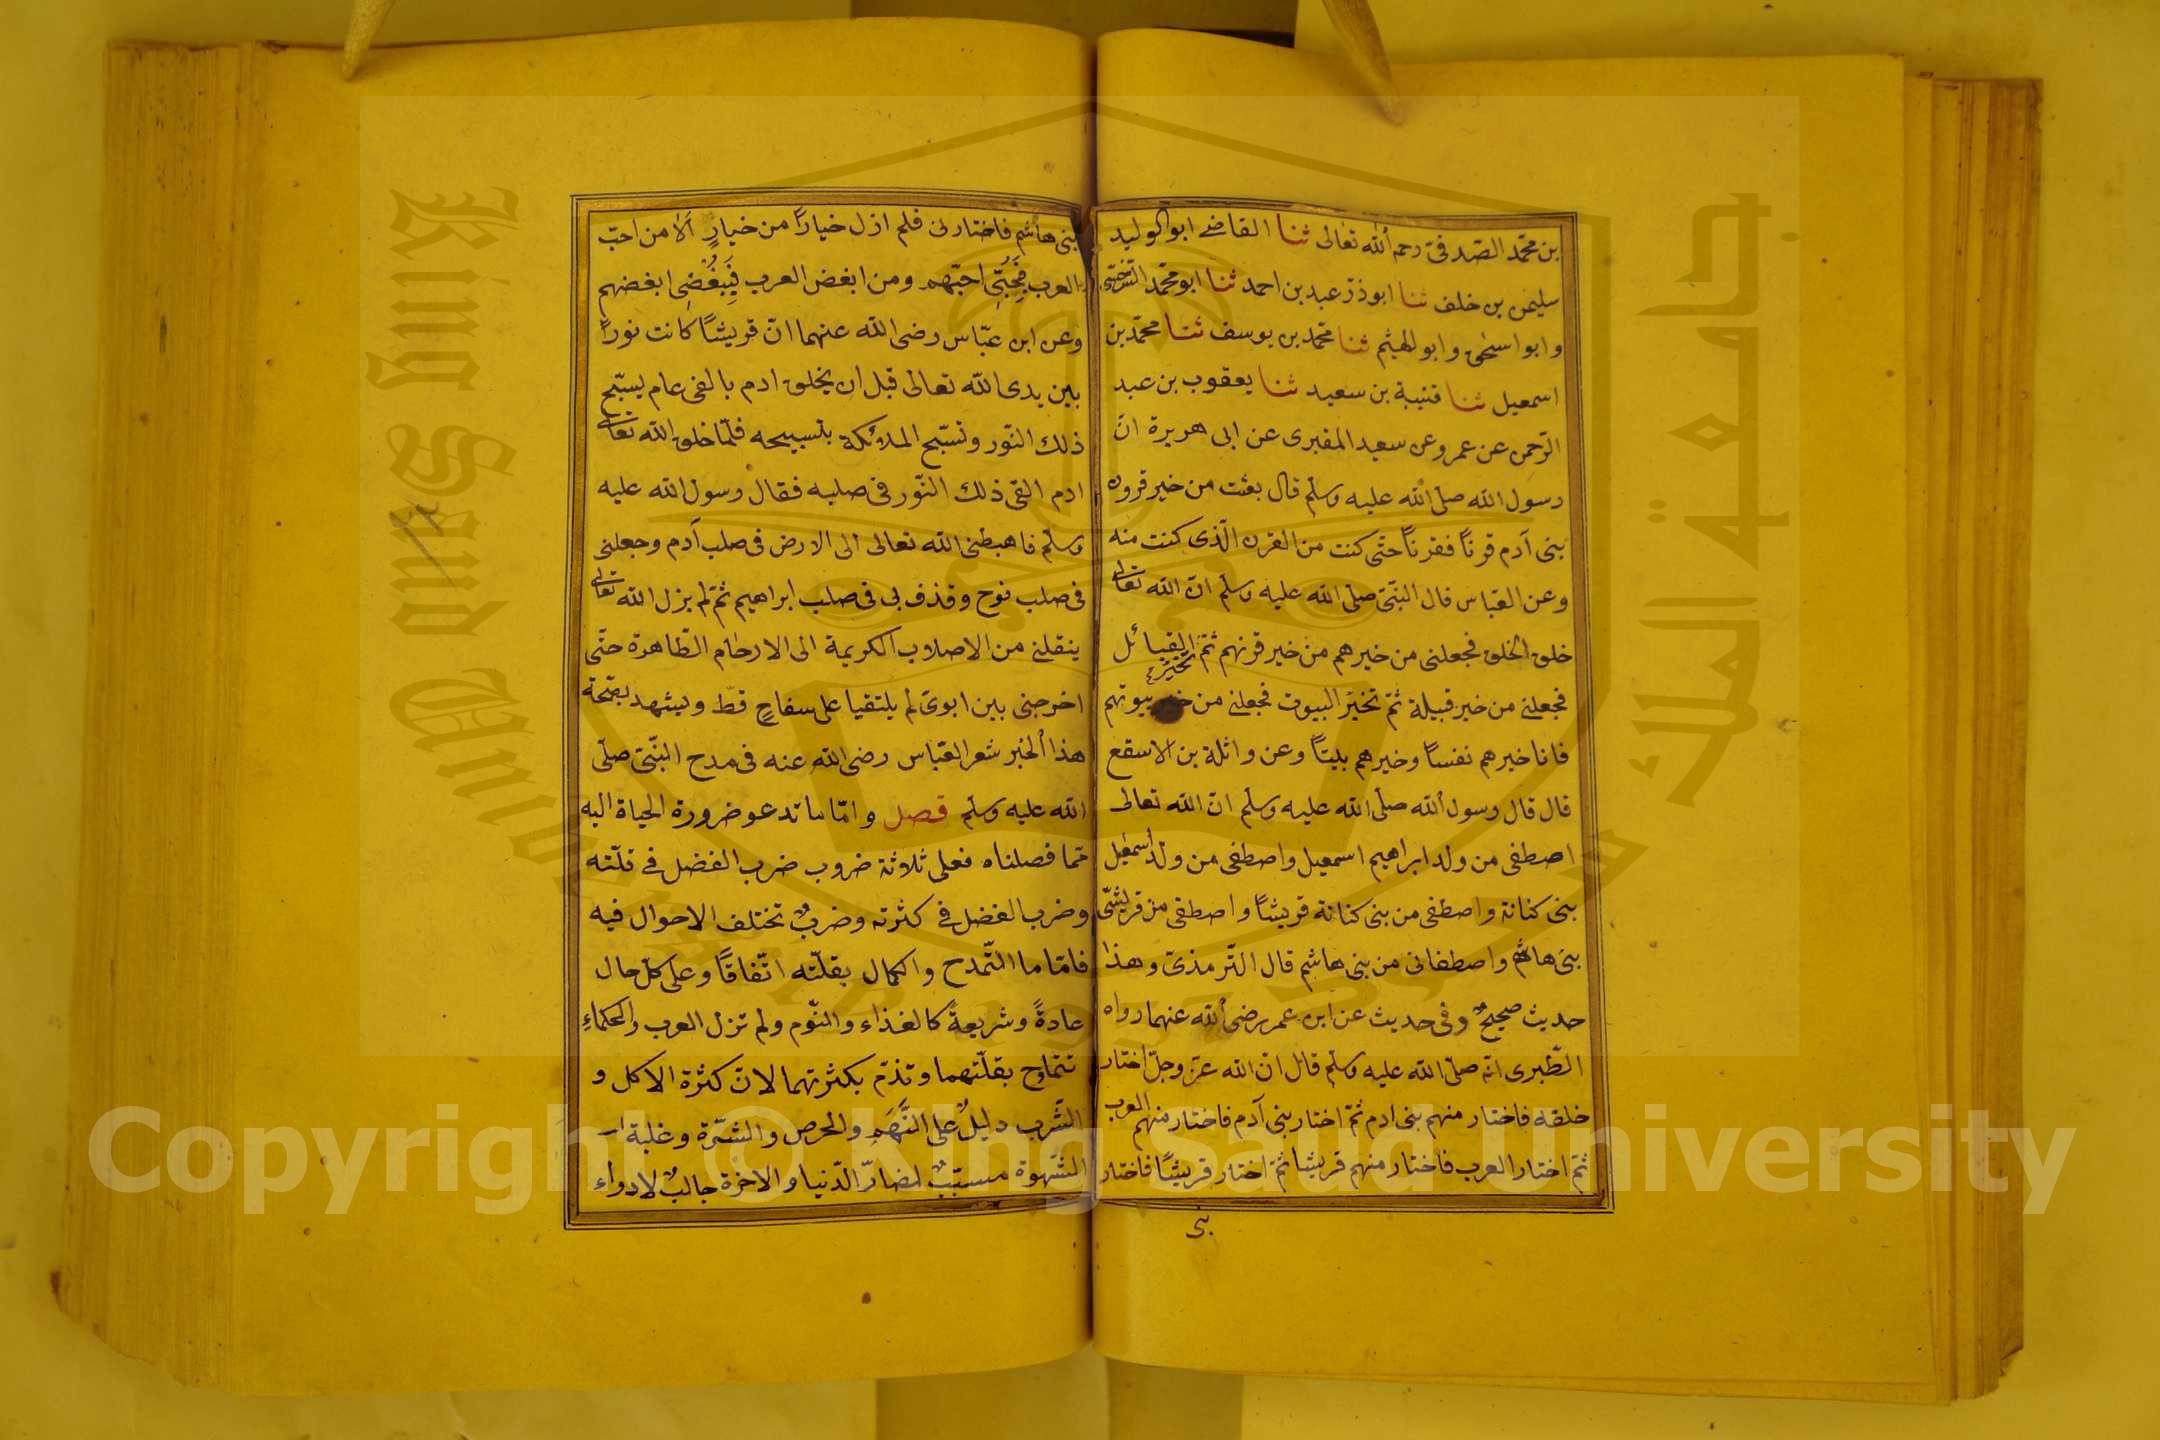 بن محمّد الصّدفىّ رحمه الله تعالى ثنا القاضى ابو الوليد
سليمن بن خلف ثنا ابو ذرّ عبد بن احمد ثنا ابو محمّد السّرخسى
و ابو اسحٰق و ابو الهيثم ثنا محمّد بن يوسف ثنا محمّد بن
اسمعيل ثنا قتيبة بن سعيد ثنا يعقوب بن عبد
الرّحمن عن عمرو عن سعيد المقبرى عن ابى هريرة انّ
رسول الله صلّى الله عليه وسلّم قال بعثت من خير قرون
بنى آدم قرناً فقرناً حتّى كنت من القرن الّذى كنت منه
وعن العبّاس قال النّبىّ صلّى الله عليه وسلّم انّ الله تعالى
خلق الخلق فجعلنى من خيرهم من خير قرنهم ثمّ تخيّر القبائل
فجعلنى من خير قبيلة ثمّ تخيّر البيوت فجعلنى من خير بيوتهم
فانا خيرهم نفساً وخيرهم بيتاً وعن واثلة بن الاسقع
قال قال رسول الله صلّى الله عليه وسلّم انّ الله تعالى
اصطفى من ولد ابراهيم اسمعيل واصطفى من ولد اسمعيل
بنى كنانة واصطفى من بنى كنانة قريشاً واصطفى من قريش
بنى هاشم واصطفانى من بنى هاشم قال التّرمذىّ وهذا
حديث صحيح وفى حديث عن ابن عمر رضى الله عنهما رواه
الطّبرى انّه صلّى الله عليه وسلّم قال انّ الله عزّ وجلّ اختار
خلقه فاختار منهم بنى ادم ثمّ اختار بنى آدم فاختار منهم العرب
ثمّ اختار العرب فاختار منهم قريشا ثمّ اختار قريشاً فاختار
بنى
بنى هاشم فاختارنى فلم ازل خياراً من خيارٍ ألا من احبّ
العرب فبحُبّى احبّهم ومن ابغض العرب فببغضى ابغضهم
وعن ابن عبّاس رضى الله عنهما انّ قريشاً كانت نوراً
بين يدى الله تعالى قبل ان يخلق ادم بالفى عام يسبّح
ذلك النّور وتسبّح الملائكة بتسبيحه فلمّا خلق الله تعالى
ادم القى ذلك النّور فى صلبه فقال رسول الله عليه
وسلّم فاهبطنى الله تعالى الى الارض فى صلب آدم وجعلنى
فى صلب نوح وقذف بى فى صلب ابراهيم ثمّ لم يزل الله تعالى
ينقلنى من الاصلاب الكريمة الى الارحام الطّاهرة حتّى
اخرجنى بين ابوىّ لم يلتقيا على سفاحٍ قطّ ويشهد بصحّة
هذا الخبر شعر العبّاس رضى الله عنه فى مدح النّبىّ صلّى
الله عليه وسلّم فصل وامّا ما تدعو ضرورة الحياة اليه
ممّا فصلناه فعلى ثلاثة ضروب ضرب الفضل فى قلّته
وضرب الفضل فى كثرته وضربٌ تختلف الاحوال فيه
فامّا ما التّمدح والكمال بقلّته اتّفاقاً وعلى كلّ حال
عادةً وشريعةً كالغذاء والنّوم ولم تزل العرب والحكماءِ
تتمادح بقلّتهما وتذمّ بكثرتهما لانّ كثرة الاكل و
الشّرب دليلٌ على النَّهَم والحرص والشّرة وغلبة
الشّهوة مسبّبٌ لمضارّ الدّنيا والاخرة جالبٌ لادواء
King Saud University
جامعة الملك سعود
1957
Copyright © King Saud University